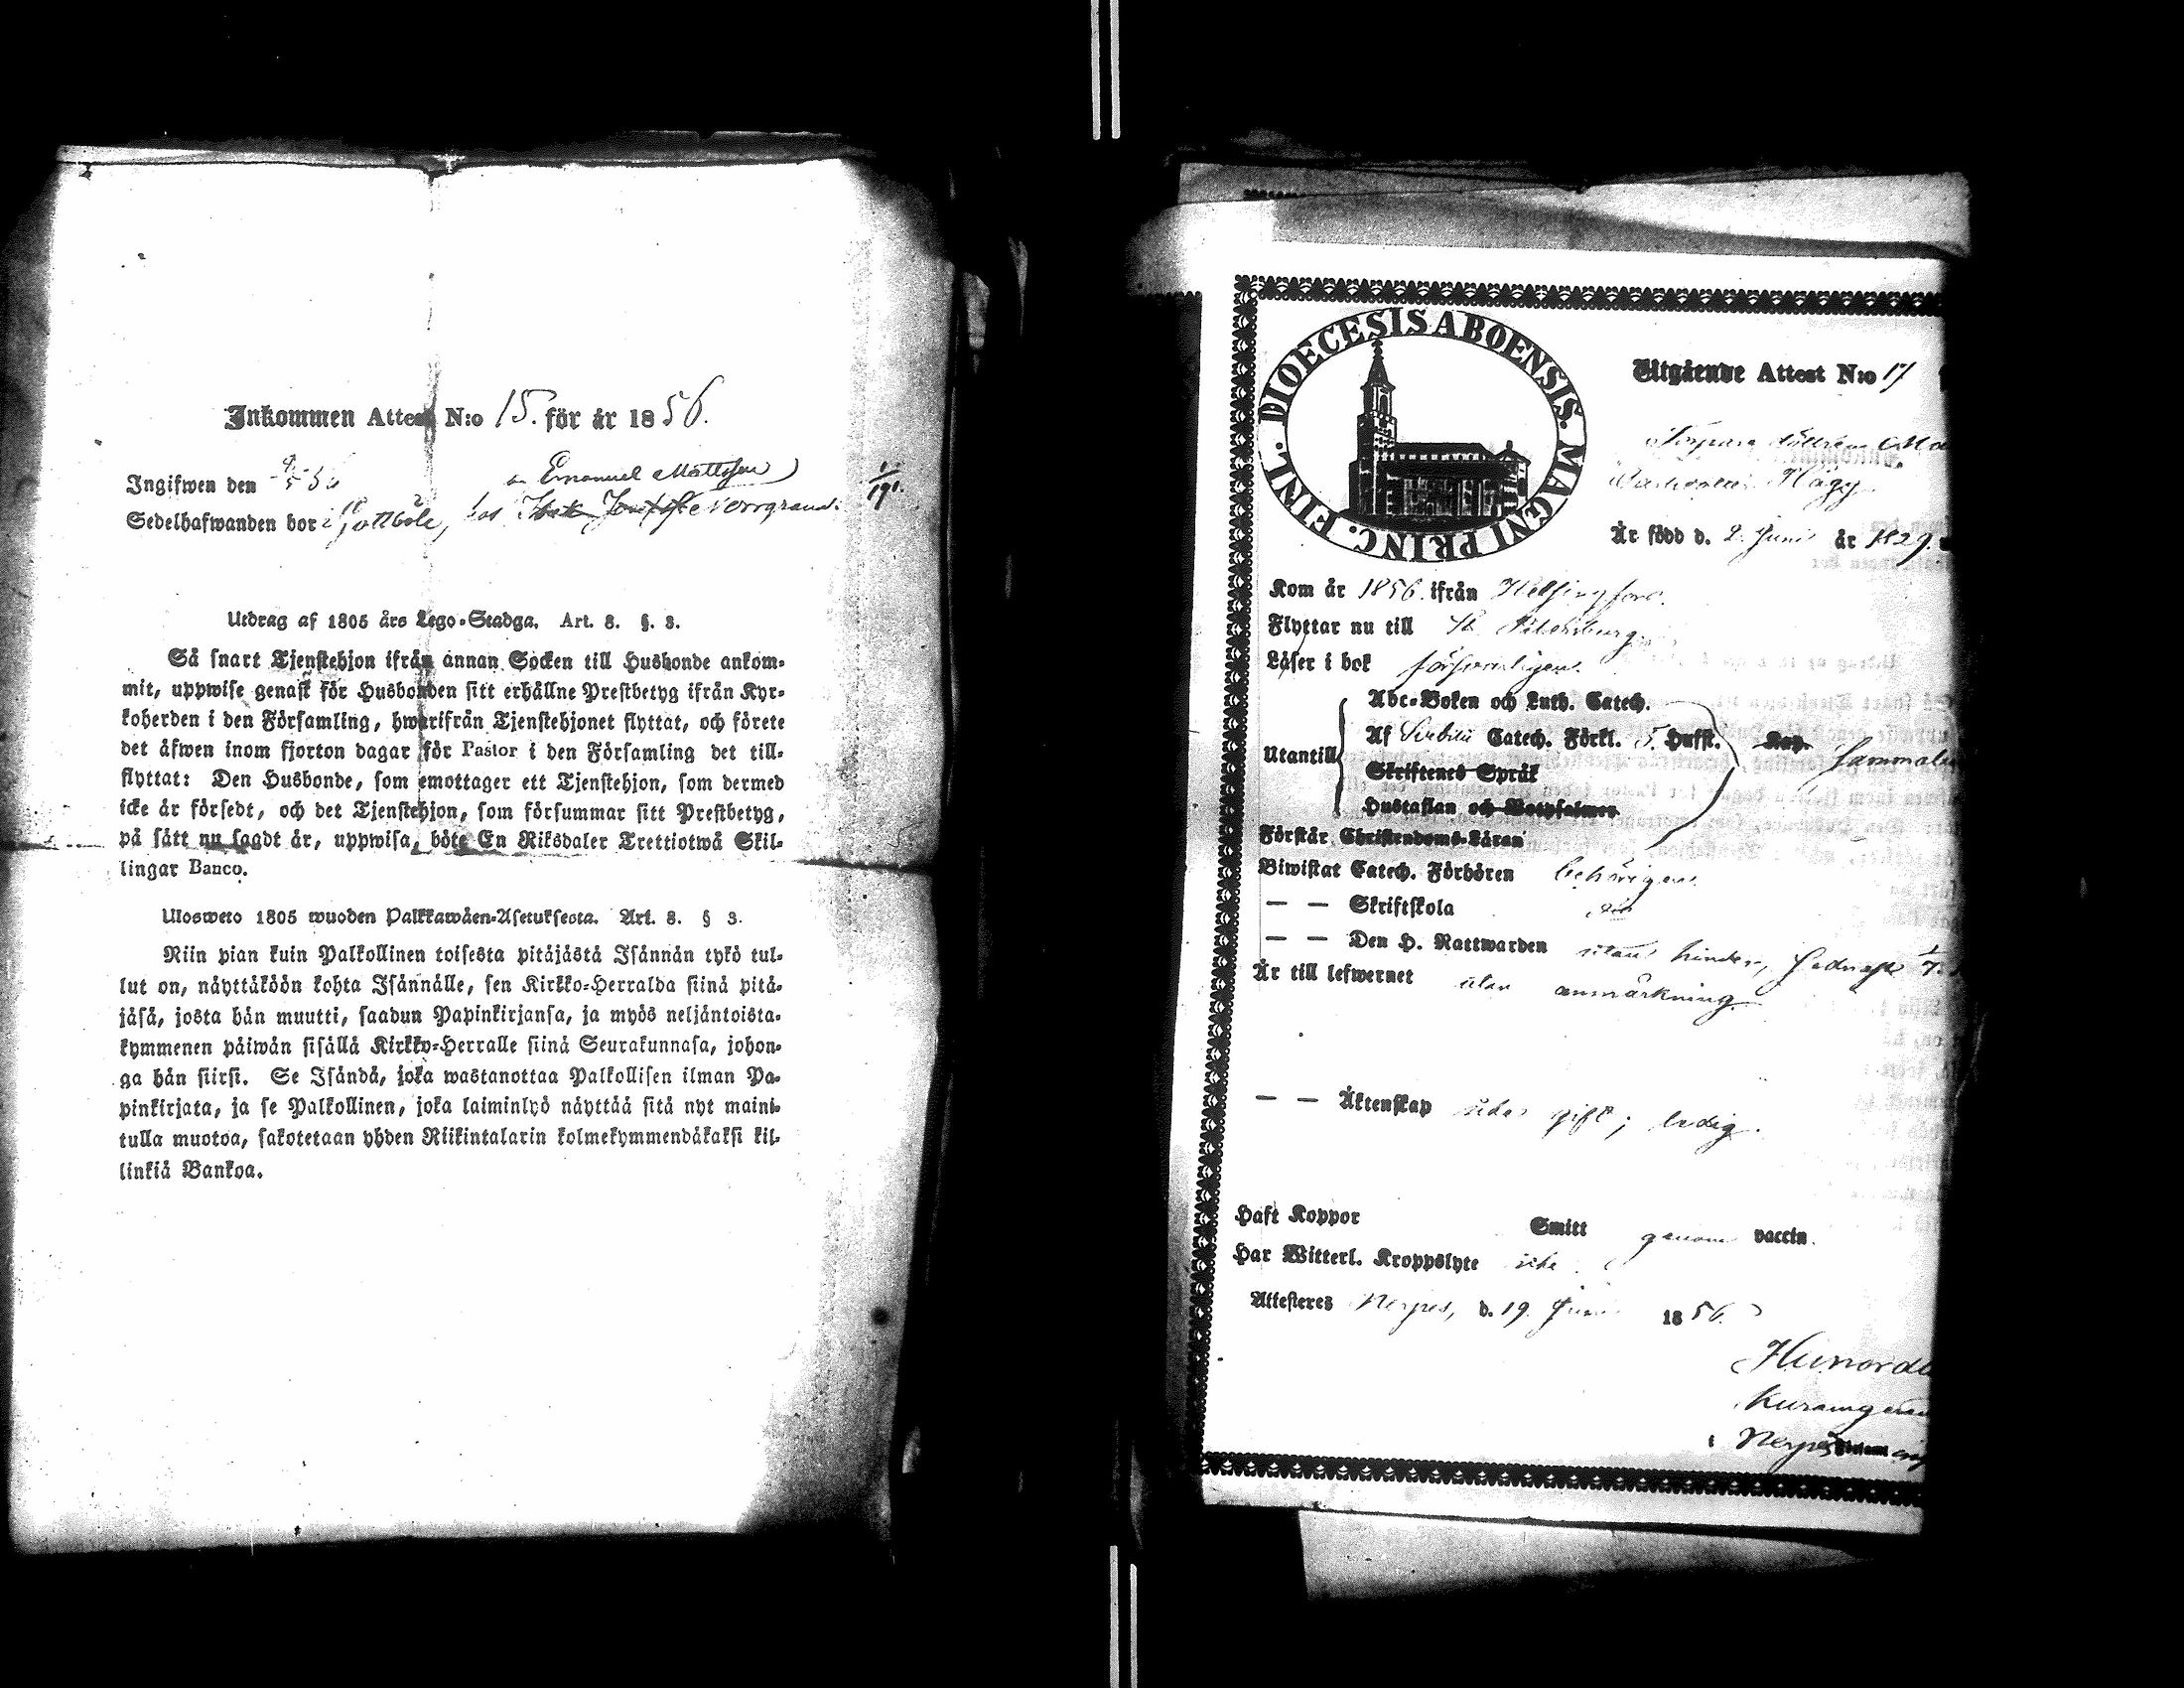 Inkommen Attest N:o 15. för år 1856.
Ingifwen den 9/5 56
Emanuel Mattsson
Sedelhafwanden bor i Gottböle, hos Norrgrand.
1/191.
Utdrag af 1805 års Lego-Stadga. Art. 8. §. 3.
Så snart Tjenstehjon ifrån annan Socken till Husbonde ankom-
mit, uppwise genast för Husbonden sitt erhållne Prestbetyg ifrån Kyr-
koherden i den Församling, hwarifrån Tjenstehjonet flyttat, och förete
det äfwen inom fjorton dagar för Pastor i den Församling det till-
flyttat: Den Husbonde, som emottager ett Tjenstehjon, som dermed
icke är försedt, och det Tjenstehjon, som försummar sitt Prestbetyg,
på sätt nu sagdt är, uppwisa, böte En Riksdaler Trettiotwå Skil-
lingar Banco.
Ulosweto 1805 wuoden Palkkawäen-Asetuksesta. Art. 8. § 3.
Niin pian kuin Palkollinen toisesta pitäjästä Isännän tykö tul-
lut on, näyttäköön kohta Isännälle, sen Kirkko-Herralda siinä pitä-
jäsä, josta hän muutti, saadun Papinkirjansa, ja myös neljäntoista-
kymmenen päiwän sisällä Kirkko-Herralle siinä Seurakunnasa, johon-
ga hän siirsi. Se Isändä, joka wastanottaa Palkollisen ilman Pa-
pinkirjata, ja se Palkollinen, joka laiminlyö näyttää sitä nyt maini-
tulla muotoa, sakotetaan yhden Riikintalarin kolmekymmendäkaksi kil-
linkiä Bankoa.
DIOECESIS ABOENSIS. MAGNI PRINC. FINL.
Utgående Attest N:o 17
Torpare dottren
Hägg
Är född d. 2. Juni år 1829.
Kom år 1856. ifrån Helsingfors.
Flyttar nu till St. Petersburg.
Läser i bok försvarligen.
Utantill
Abc-Boken och Luth. Catech.
Af Svebilii Catech. Förkl. 5. Hufst. Kap.
Skriftenes Språk
Hustaflan och Botpsalmer
Förstår Christendoms-Läran
Biwistat Catech. Förhören behörigen.
— — Skriftskola
— — Den H. Nattwarden utan hinder,
Är till lefwernet utan anmärkning.
— — Äktenskap icke gift; ledig.
Haft Koppor Smitt genom vaccin.
Har Witterl. Kroppslyte icke.
Attesteres Nerpes, d. 19. Juni 1856.
i Nerpes